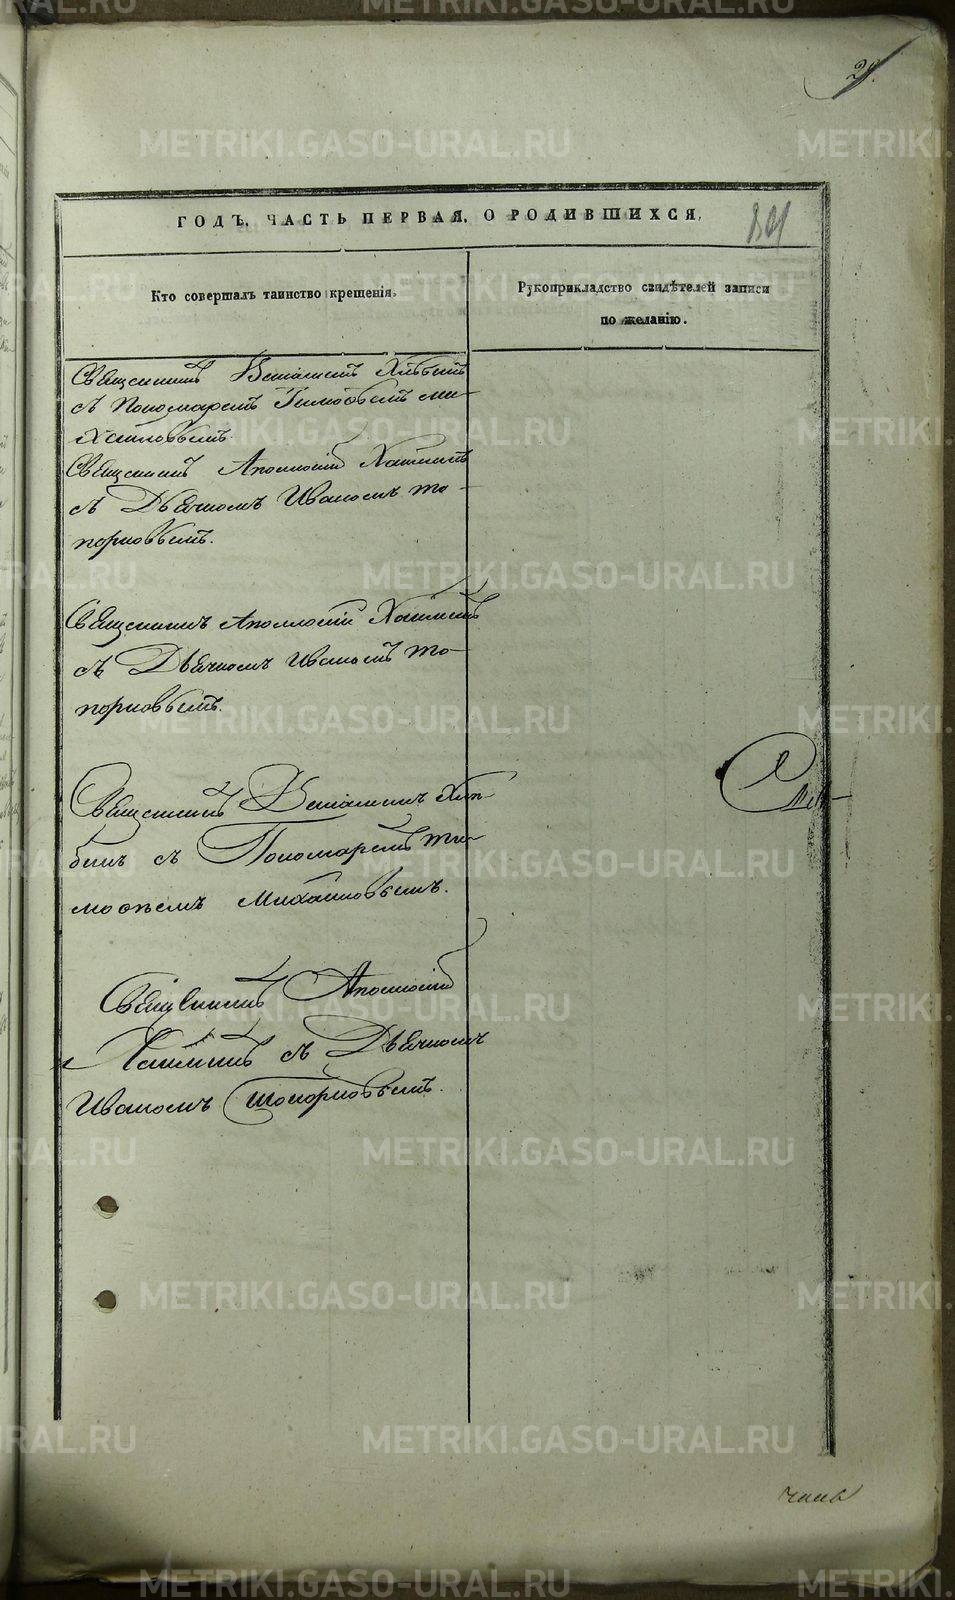 29.
ГОДЪ, ЧАСТЬ ПЕРВАЯ, О РОДИВШИХСЯ,
801
Кто совершалъ таинство крещенія.
Рукоприкладство свидѣтелей записи
по желанію.
Священникъ Веніаминъ Хлѣбинъ
съ Пономаремъ Тимоѳеемъ Ми-
хайловымъ.
Священникъ Аполлоній
съ Дьячкомъ Иваномъ То-
порковымъ.
Священникъ Аполлоній
съ Дьячкомъ Иваномъ То-
порковымъ.
Священникъ Веніаминъ Хлѣ-
бинъ съ Пономаремъ Ти-
моѳеемъ Михайловымъ.
Священникъ Аполлоній
съ Дьячкомъ
Иваномъ Топорковымъ.
METRIKI.GASO-URAL.RU